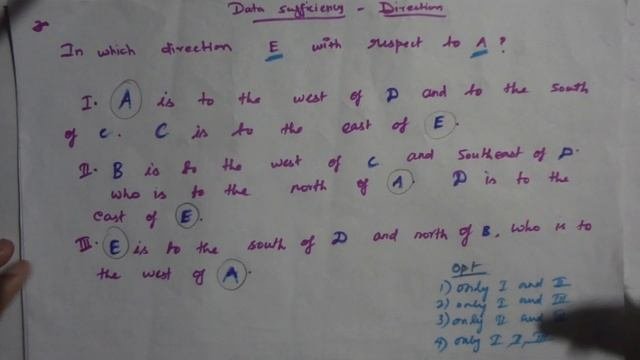 Data sufficiency - Direction
In which direction E with respect to A?
I. A is to the west of D and to the south
of C. C is to the east of E.
II. B is to the west of C and southeast of D.
who is to the north of A. D is to the
east of E.
III. E is to the south of D and north of B, who is to
the west of A.
Opt
1) only I and II
2) only I and III
3) only II and
4) only I II